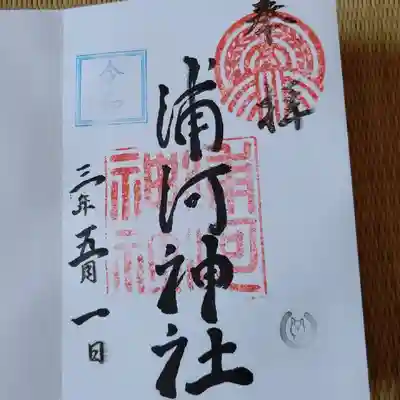 奉拝
浦河神社
浦河
神社
令和
三年五月一日